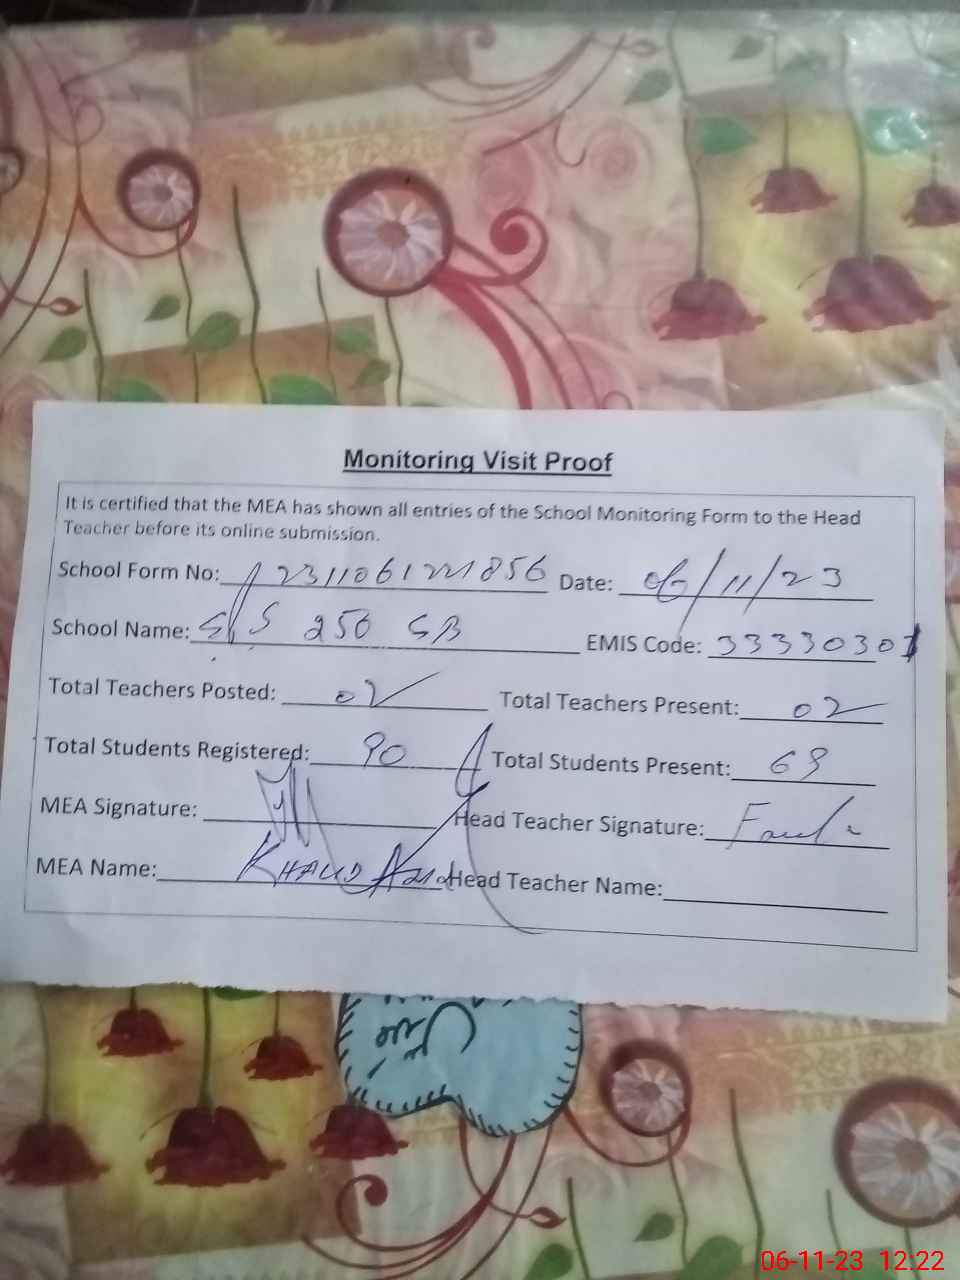 Monitoring Visit Proof
It is certified that the MEA has shown all entries of the School Monitoring Form to the Head
Teacher before its online submission.
School Form No: 2311061221856 Date: 06/11/23
School Name: 250 SB EMIS Code: 33330301
Total Teachers Posted: 02 Total Teachers Present: 02
Total Students Registered: 90 Total Students Present: 69
MEA Signature: Head Teacher Signature:
MEA Name: KHALID Head Teacher Name:
06-11-23 12:22